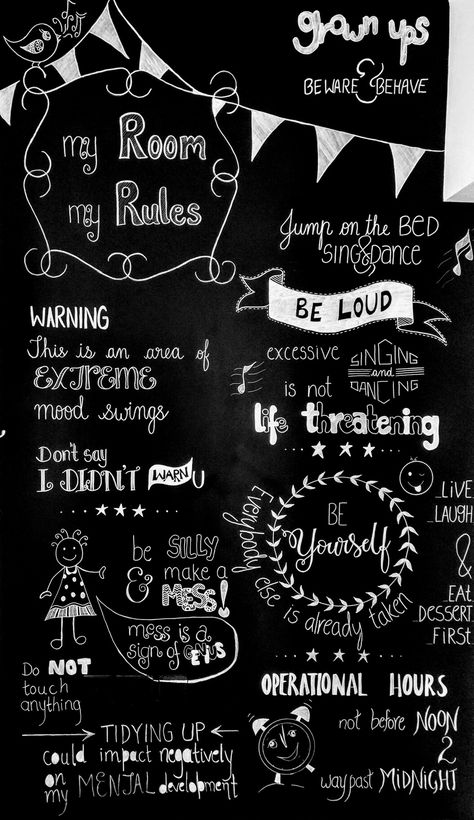 my Room
my Rules
WARNING
This is an area of
EXTREME
mood swings
Don't say
I DIDN'T WARN U
be SILLY
& make a
MESS!
mess is a
sign of GENIUS
Do NOT
touch
anything
TIDYING UP
could impact negatively
on
my MENTAL development
grown ups
BEWARE & BEHAVE
Jump on the BED
SING & DANCE
BE LOUD
excessive SINGING
and
is not DANCING
life threatening
BE
Yourself
Everybody else is already taken
LIVE
LAUGH
&
EAT
DESSERT
FIRST
OPERATIONAL HOURS
not before NOON
2
way past MIDNIGHT